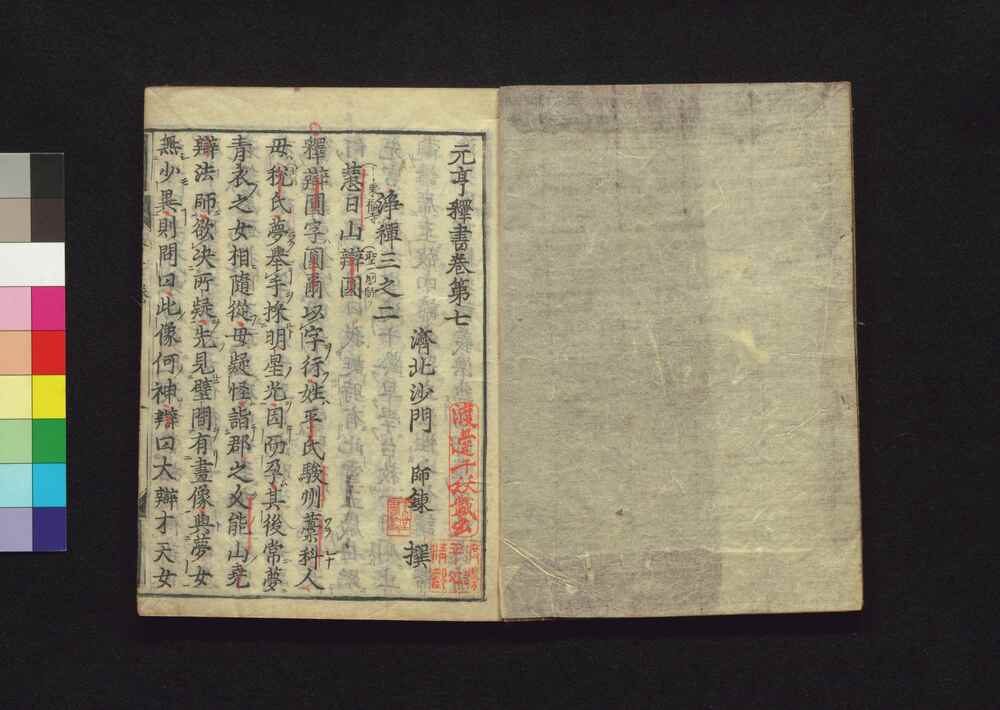 元亨釋書卷第七
濟北沙門 師鍊 撰
淨禪三之二
慧日山辯圓
釋辯圓字圓爾以字行姓平氏駿州藁科人
母稅氏夢舉手採明星光因而孕其後常夢
青衣之女相隨從母疑怪詣郡之久能山堯
辯法師欲決所疑先見壁間有畫像與夢女
無少異則問曰此像何神辯曰大辯才天女